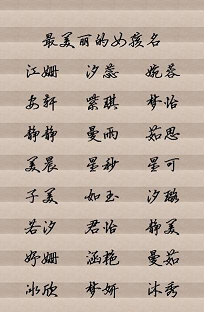 最美丽的女孩名
江姗 汐蕊 婉蓉
安轩 紫琪 梦怡
静静 曼雨 茹思
美晨 星秒 星可
子美 如玉 汐璐
若汐 君怡 静美
妤姗 涵艳 曼茹
冰欣 梦妍 沐秀